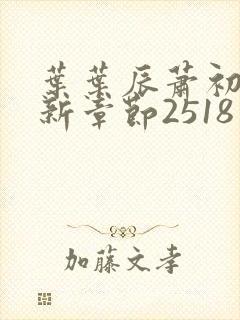 葉葉辰蕭初
新章節2518
加藤文孝